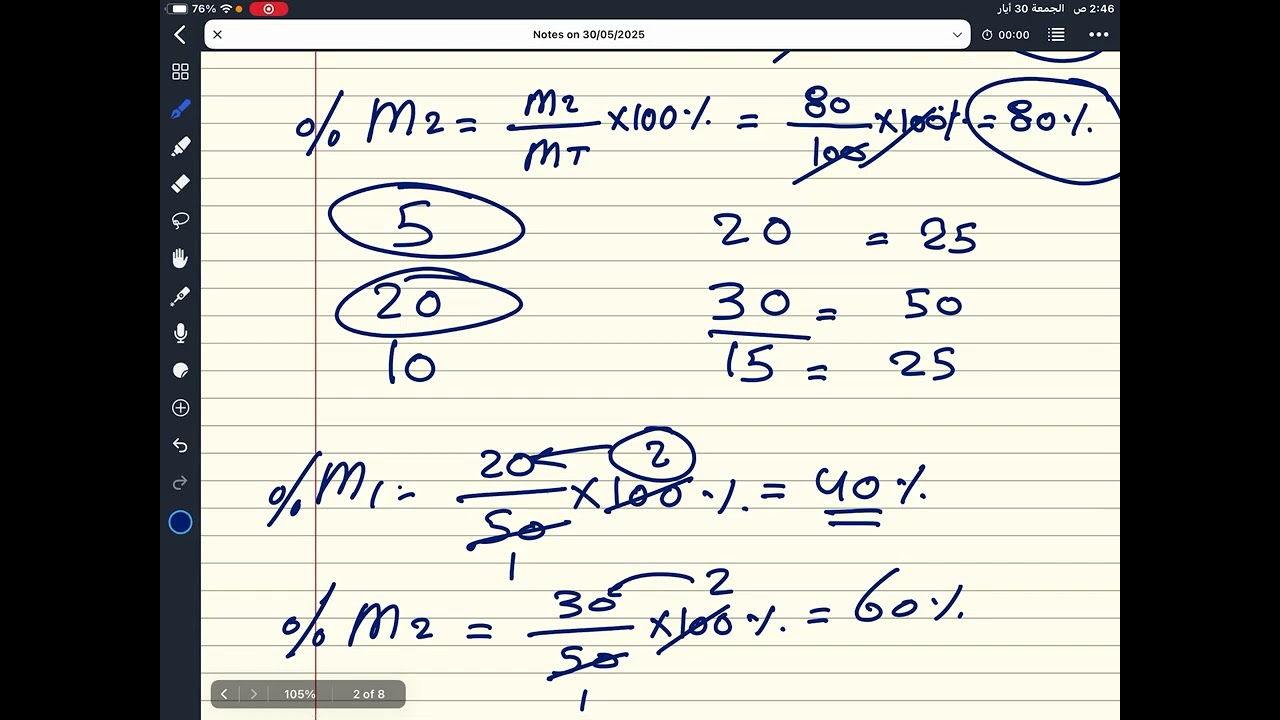 76%
2:46 ص الجمعة 30 أيار
Notes on 30/05/2025
00:00
% M2 = M2 / MT ×100% = 80 / 100 ×100% = 80%
5 20 = 25
20 30 = 50
10 15 = 25
2
%M1 = 20 / 50 ×100 % = 40%
1
2
% M2 = 30 / 50 ×100 % = 60%
1
105% 2 of 8